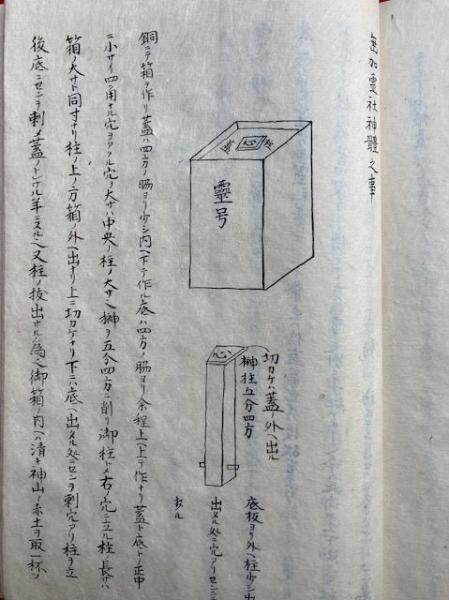 無加靈社神體之事
靈号
心
柱
心
切カケハ蓋ノ外ヘ出ル
榊柱五分四方
底板ヨリ外ヘ柱少シ出
出タル処ニ穴アリセン
銅ニテ箱ヲ作リ蓋ハ四方ノ脇ヨリ少シ内ヘ下テ作ル底ハ四方ノ脇ヨリ余程上ヘ上テ作ナリ蓋ト底トノ正中
ニ小サイ四角ナル穴ヲアクル穴ノ大サハ中央ノ柱ノ大サ也榊ヲ五分四方ニ削リ御柱トメ右ノ穴ニ立ル柱ノ長サハ
箱ノ大サト同寸ナリ柱ノ上ノ方箱ノ外ヘ出ナリ上ニ切カケナリ下ニハ底ヘ出タル処ニセンヲ刺穴アリ柱ヲ立
後底ニセンヲ刺メ蓋ノトレサル羊ニスル也又柱ノ拔出サル為也御箱ノ内ヘハ清キ神山ノ赤土ヲ取一杯ノ